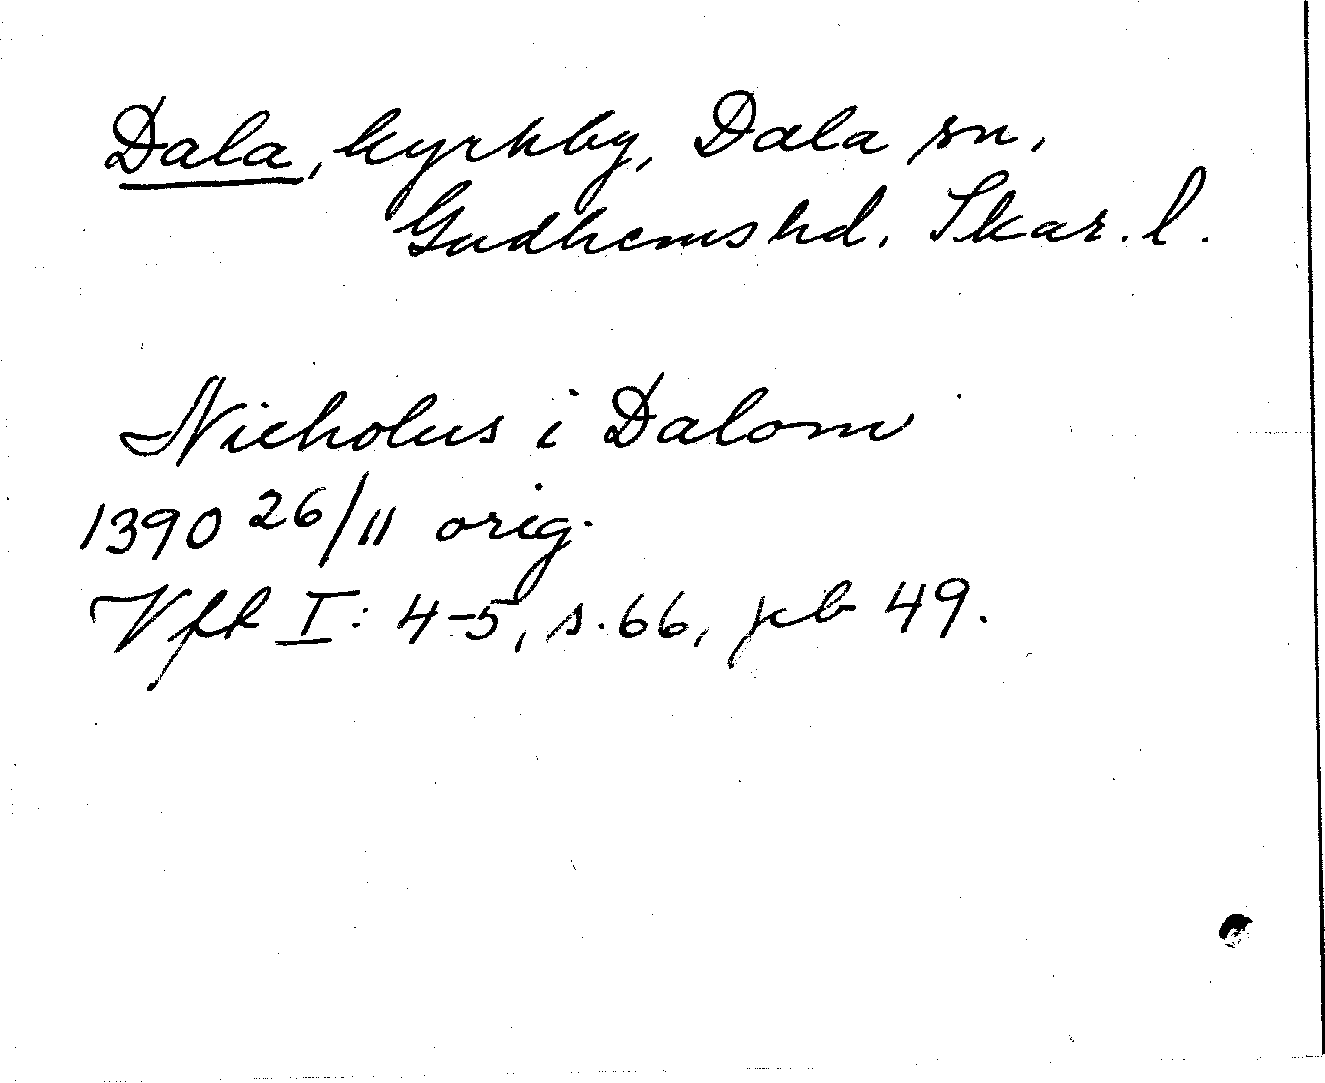 Dala, kyrkby, Dala sn,
Gudhems hd. Skar. l.
Nicholus i Dalom
1390 26/11 orig.
Vfk I: 4-5, s. 66, peb 49.